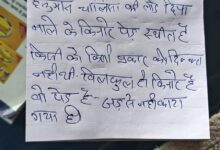 हनुमान चालिसा की
नाले के किनारे पेड़ स्थीत है
किसी को किसी प्रकार की दिक्कत
नही थी। बिलकुल ही किनारे है
वो पेड़ है - जड़ से नही काटा
गया है